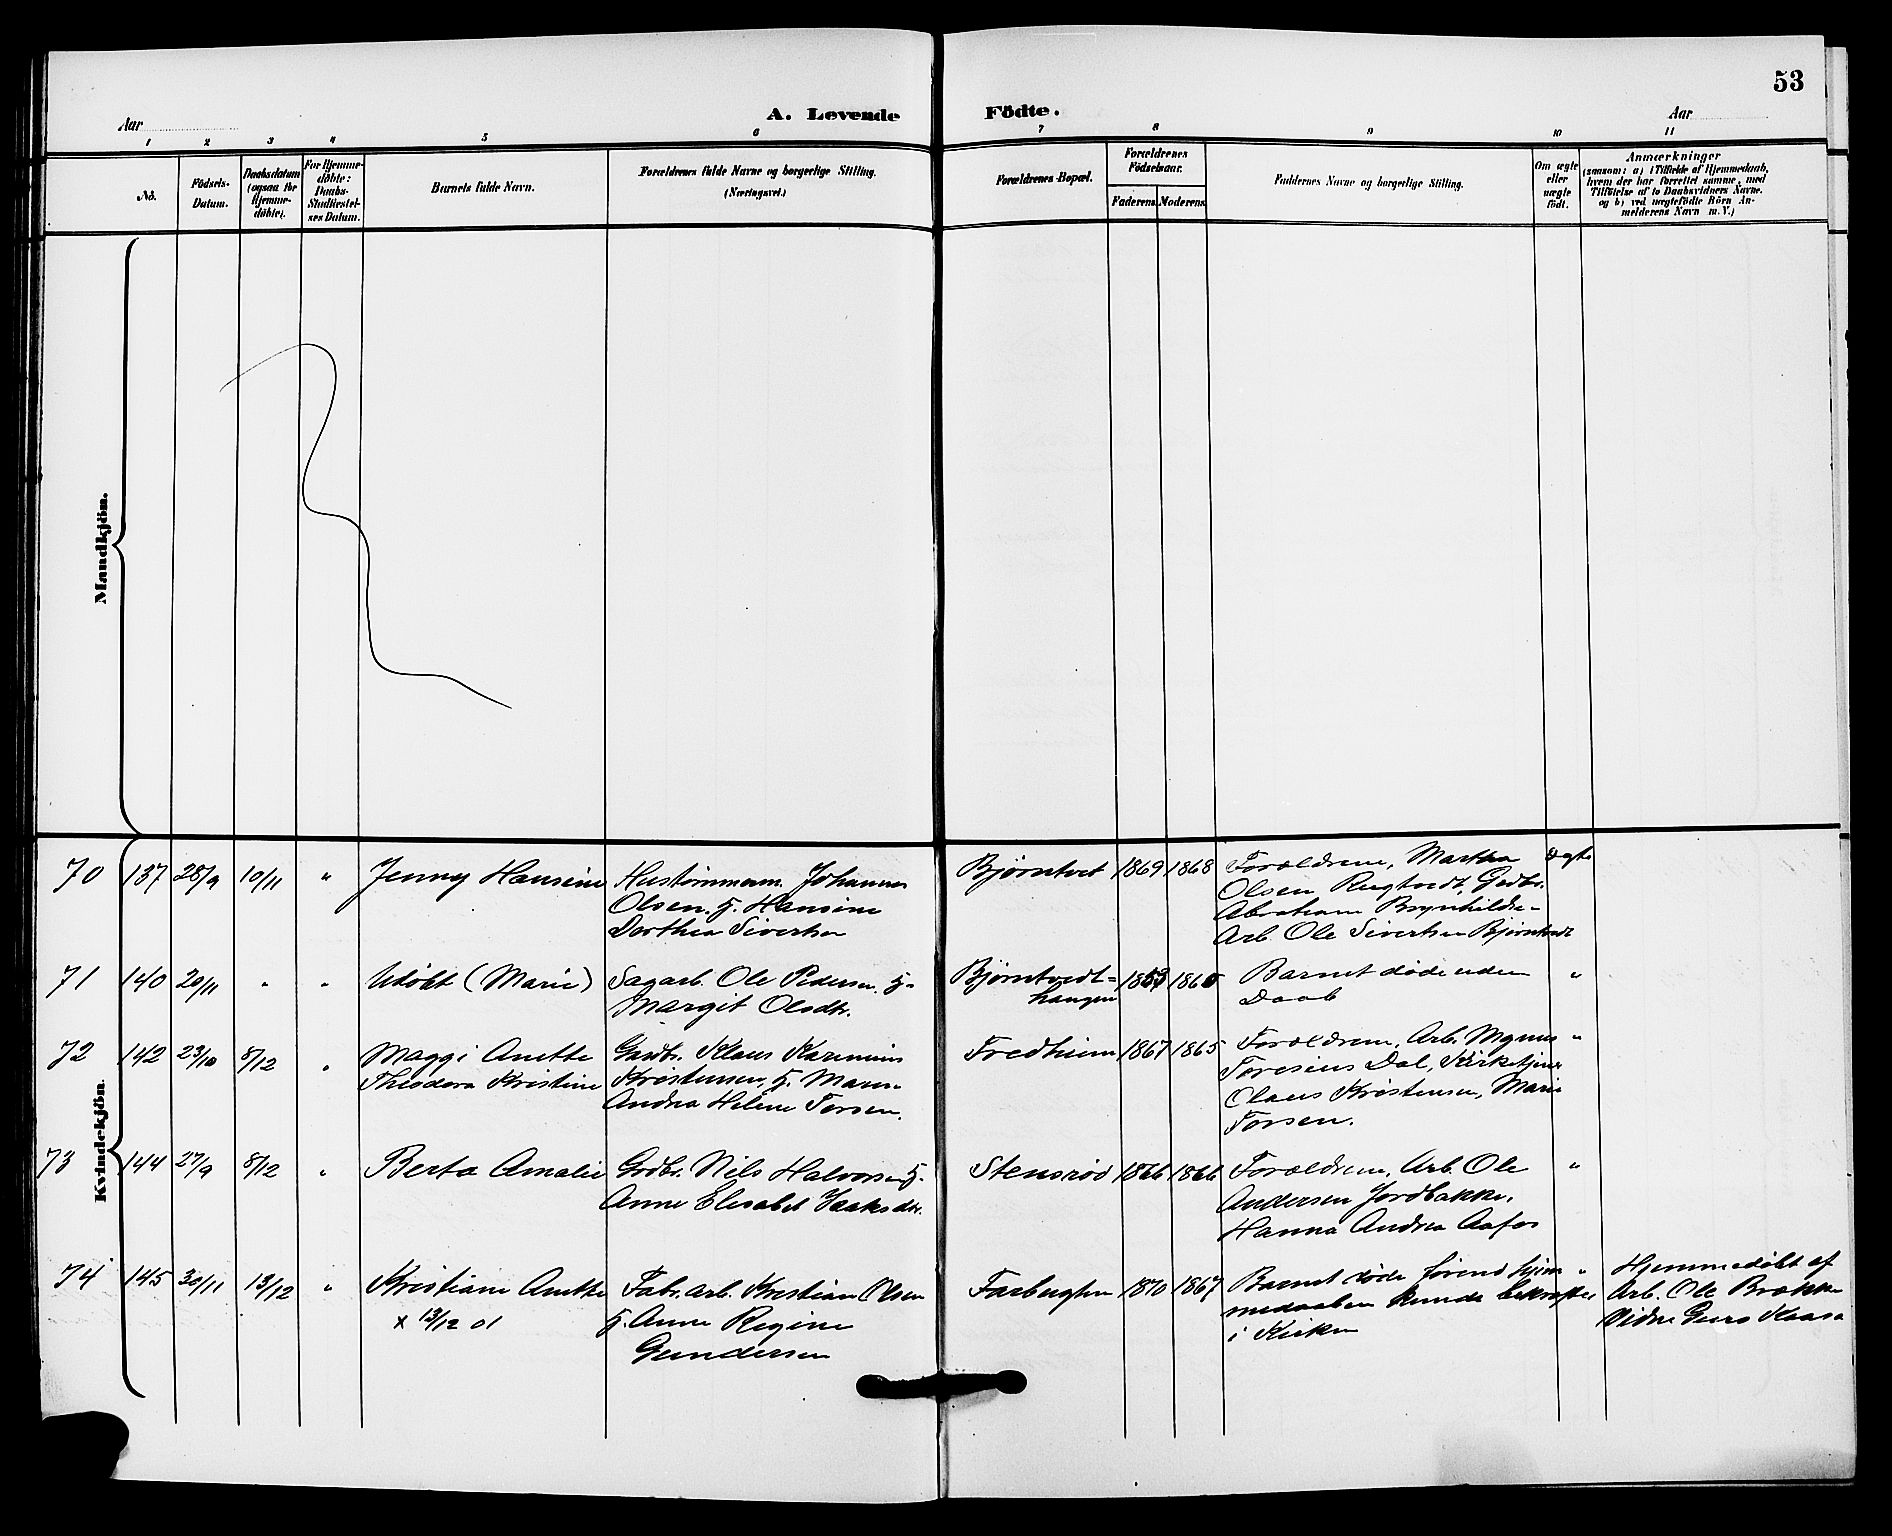 53
A. Levende Födte.
Aar
Aar
1 2 3 4 5 6 7 8 9 10 11
No.
Födsels-Datum.
Daabsdatum (ogsaa for Hjemmedöbte).
For Hjemmedöbte: Daabs-Stadfæstelses Datum.
Barnets fulde Navn.
Forældrenes fulde Navne og borgerlige Stilling. (Næringsvei.)
Forældrenes Bopæl.
Forældrenes Födselsaar.
Faderens Moderens
Faddernes Navne og borgerlige Stilling.
Om ægte eller uægte födt.
Anmærkninger
(saasom: a) i Tilfælde af Hjemmedaab,
hvem der har forrettet samme, med
Tilföielse af to Daabsvidners Navne.
og b) ved uægtefödte Börn An-
melderens Navn m. V.)
Mandkjön.
Kvindekjön.
70 137 28/9 10/11 " Jenny Hansine
Hustömmerm. Johannes
Olsen. H. Hansine
Dorthea Sivertsen
Bjørntvet 1869 1868
Forældrene, Martha
Olsen Rugtvedt, Gdbr.
Abraham Brynhildsen
Arb. Ole Sivertsen Bjørntvedt
Ægte
71 140 20/11 " " Udøbt (Marie)
Sagarb. Ole Pedersen. H.
Margit Olsdtr.
Bjørntvedt=
haugen
1853 1865
Barnet døde uden
Daab
"
72 142 23/10 8/12 " Maggi Anette
Theodora Kristine
Gaardbr. Klaus Karenius
Kristensen, H. Maren
Andrea Helene Torsen.
Fredheim 1867 1865
Forældrene, Arb. Magnus
Toresius Dal, Kirketjener
Olaus Kristensen, Marie
Torsen.
"
73 144 27/9 8/12 " Berta Amalie
Grdbr. Nils Halvorsen H.
Anne Elisabet Isaksdtr.
Stensrød 1866 1866
Forældrene, Arb. Ole
Andersen Jordbakke,
Hanna Andrea Aafos
"
74 145 30/11 13/12 " Kristiane Anette
x 13/12 01
Fabr. arb. Kristian Olsen
H. Anne Regine
Gundersen
1870 1867
Barnet døde førend hjem-
medaaben kunde bekræftes
i Kirken
"
Hjemmedøbt af
Arb. Ole Brække
Vidne Guro Kaasa